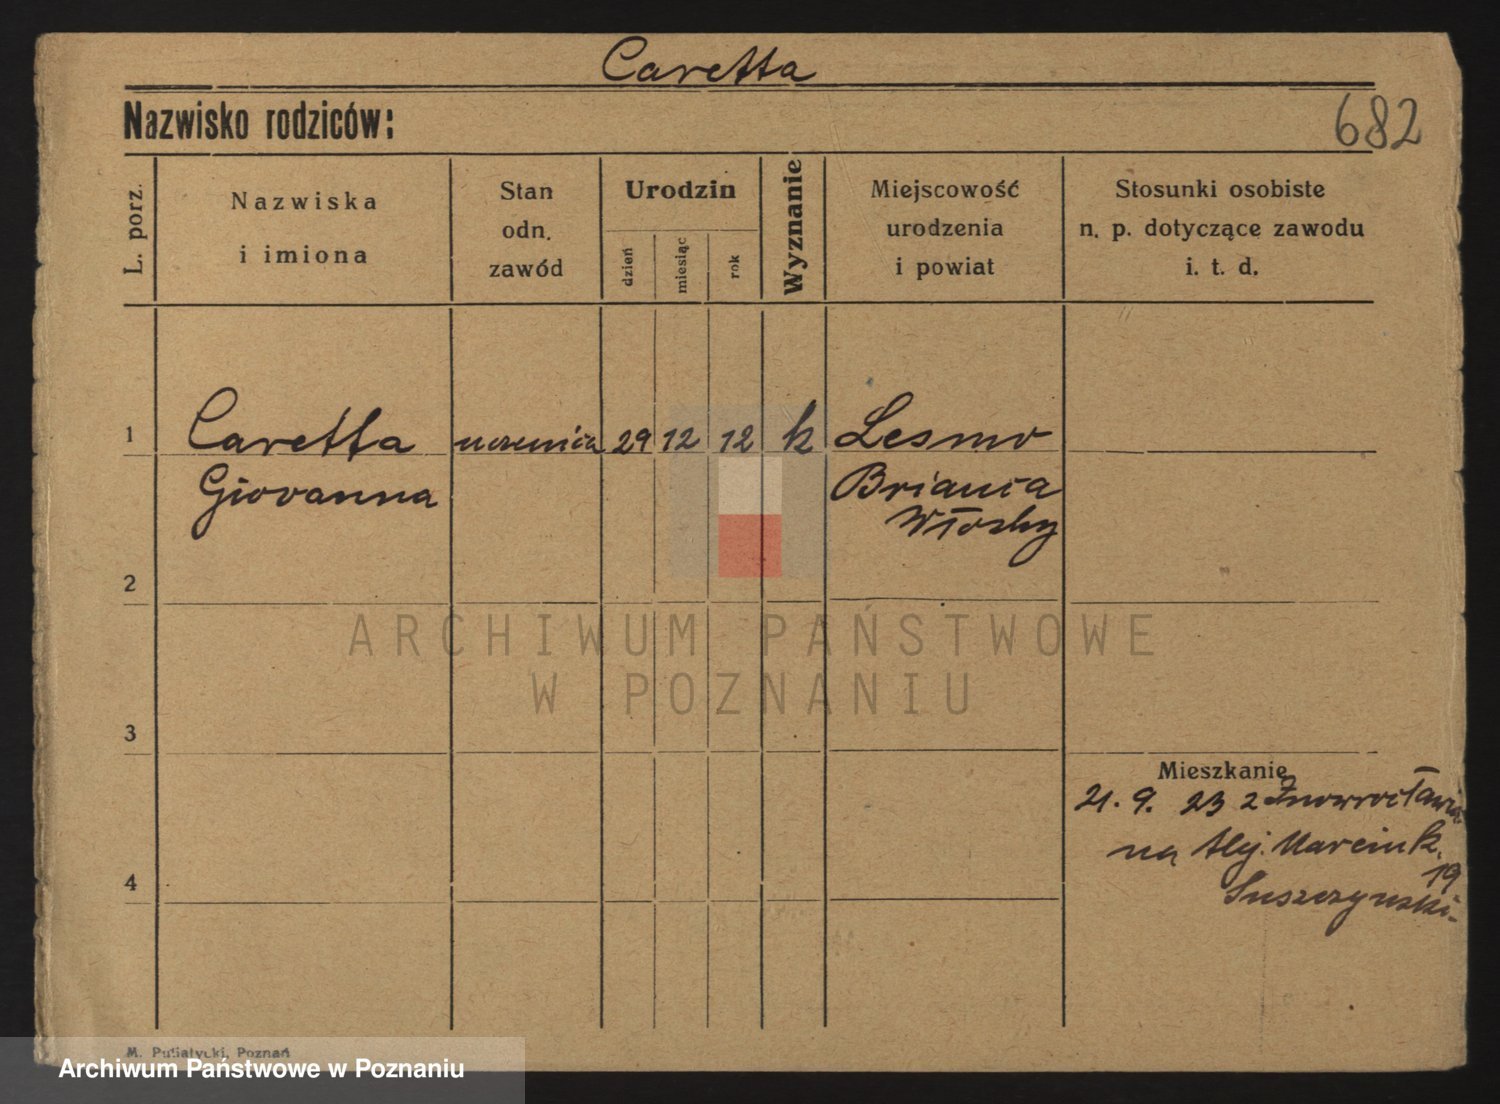 Caretta
Nazwisko rodziców:
682
L. porz.
Nazwiska
i imiona
Stan
odn.
zawód
Urodzin
dzień
miesiąc
rok
Wyznanie
Miejscowość
urodzenia
i powiat
Stosunki osobiste
n. p. dotyczące zawodu
i. t. d.
1
Caretta uczenica 29 12 12 k Lesmo
Giovanna Briança
Włochy
2
ARCHIWUM PAŃSTWOWE
W POZNANIU
3
Mieszkanie
21. 9. 23 z Inowrocławia
na Alej. Marcink.
19
4
Suszczynski
M. Putiatycki, Poznań
Archiwum Państwowe w Poznaniu